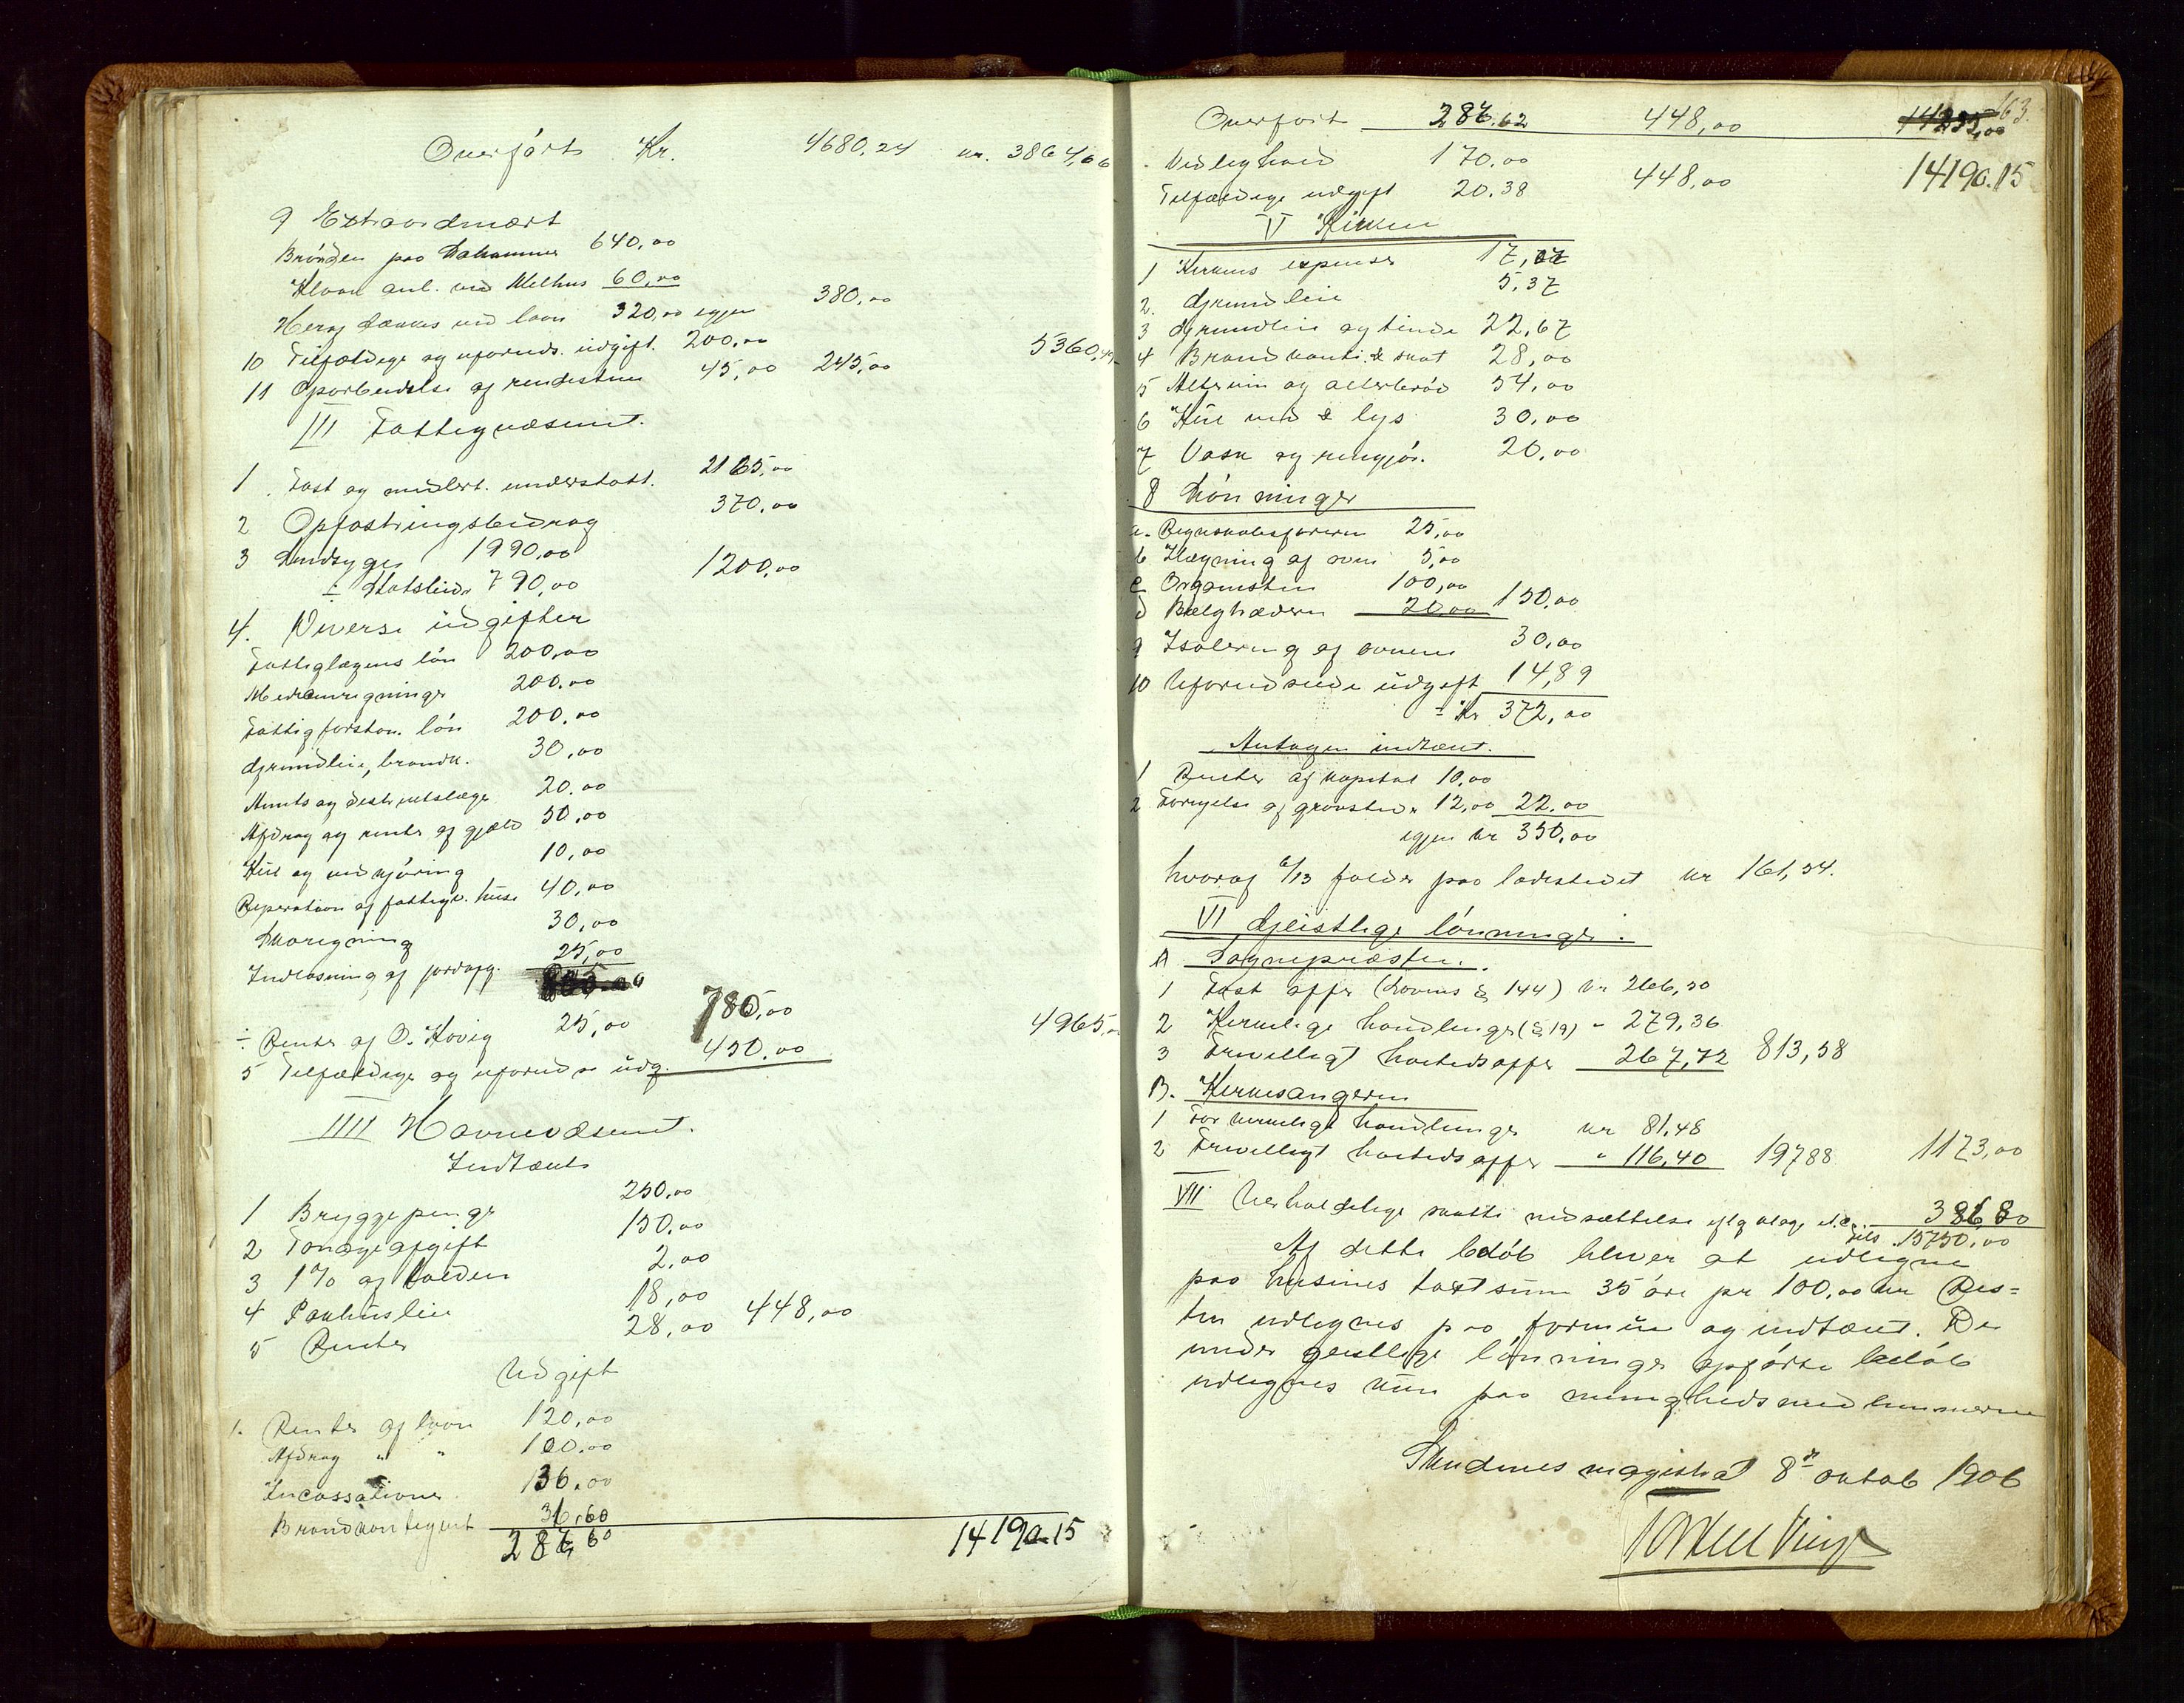 Overført Kr. 4680,24 kr. 3864,66
9 Extraordinært
Brönden paa 640,00
Kloak anl. ved Melhus 60,00
Heraf dækkes ved laan 320,00 igjen 380,00
10 Tilfældige og uforuds. udgift. 200,00
11 Oparbeidelse af rendesten 45,00 245,00 5360,
III Fattigvæsenet.
1 Fast og midlert. understøtt. 2165,00
2 Opfostringsbidrag 370,00
3 Sindsyge 1990,00
÷ Statsbidr. 790,00 1200,00
4. Diverse udgifter
Fattiglægens løn 200,00
Medicinregninger 200,00
Fattigforstan. løn 200,00
Grundleie, brandk. 30,00
Amts og distriktslæge 20,00
Afdrag og renter af gjæld 50,00
Kul og vedkjøring 10,00
Reperation af fattigv. huse 40,00
Skoregning 30,00
Indløsning af jordafg. 25,00
÷ Renter af O. Kovig 25,00 780,00
5 Tilfældige og uforuds. udg. 450,00 4965,
IIII Havnevæsenet.
Indtægt
1 Bryggepenge 250,00
2 Tonageafgift 150,00
3 1% af tolden 2,00
4 Pakhusleie 18,00
5 Renter 28,00 448,00
Udgift
1. Renter af laan 120,00
Afdrag " " 100,00
Incassationer 30,00
Brandkontingent 36,60
286,60 14190.15
63.
Overført 286.62 448,00 14235,00
Vedlighold 170.00
Tilfældige udgift 20.38 448,00 14190.15
V Kirken
1 Kirkens expenser 17,07
2. Grundleie 5,37
3 Grundleie og tiende 22,67
4 Brandkonti. & skat 28,00
5 Altervin og alterbrød 54,00
6 Kul ved & lys 30,00
7 Vask og rengjør. 20,00
8 Lønninger
a. Regnskabsføreren 25,00
b Ilægning af ovn 5,00
c Organisten 100,00
d Bælgtræderen 20,00 150,00
9 Isolering af ovnene 30,00
10 Uforudseede udgift 14,89
÷ Kr 372,00
Antagen indtægt.
1 Renter af kapital 10,00
2 Fornyelse af gravsted. 12,00 22.00
igjen kr 350,00
hvoraf 6/13 falder paa ladestedet kr 161,54.
VI Gjeistlige lønninger.
A Sognepræsten.
1 Fast offer (Lovens § 144) kr 266,50
2 Kirkelige handlinger (§ 19) " 279,36
3 Frivilligt høitidsoffer 267,72 813,58
B. Kirkesangeren
1 For kirkelige handlinger kr 81,48
2 Frivilligt høitidsoffer " 116,40 19788 1173,00
VII Uerholdelige skatte nedsættelse eftr klage etc. 386,80
Tils. 15750,00
Af dette beløb bliver at udligne
paa husenes taxtsum 35 øre pr 100,00 kr Res=
ten udlignes paa formue og indtægt. De
under geistlige lønninger opførte beløb
udlignes kun paa menighedsmedlemmerne
Skudenes magistrat 8de oktob 1906